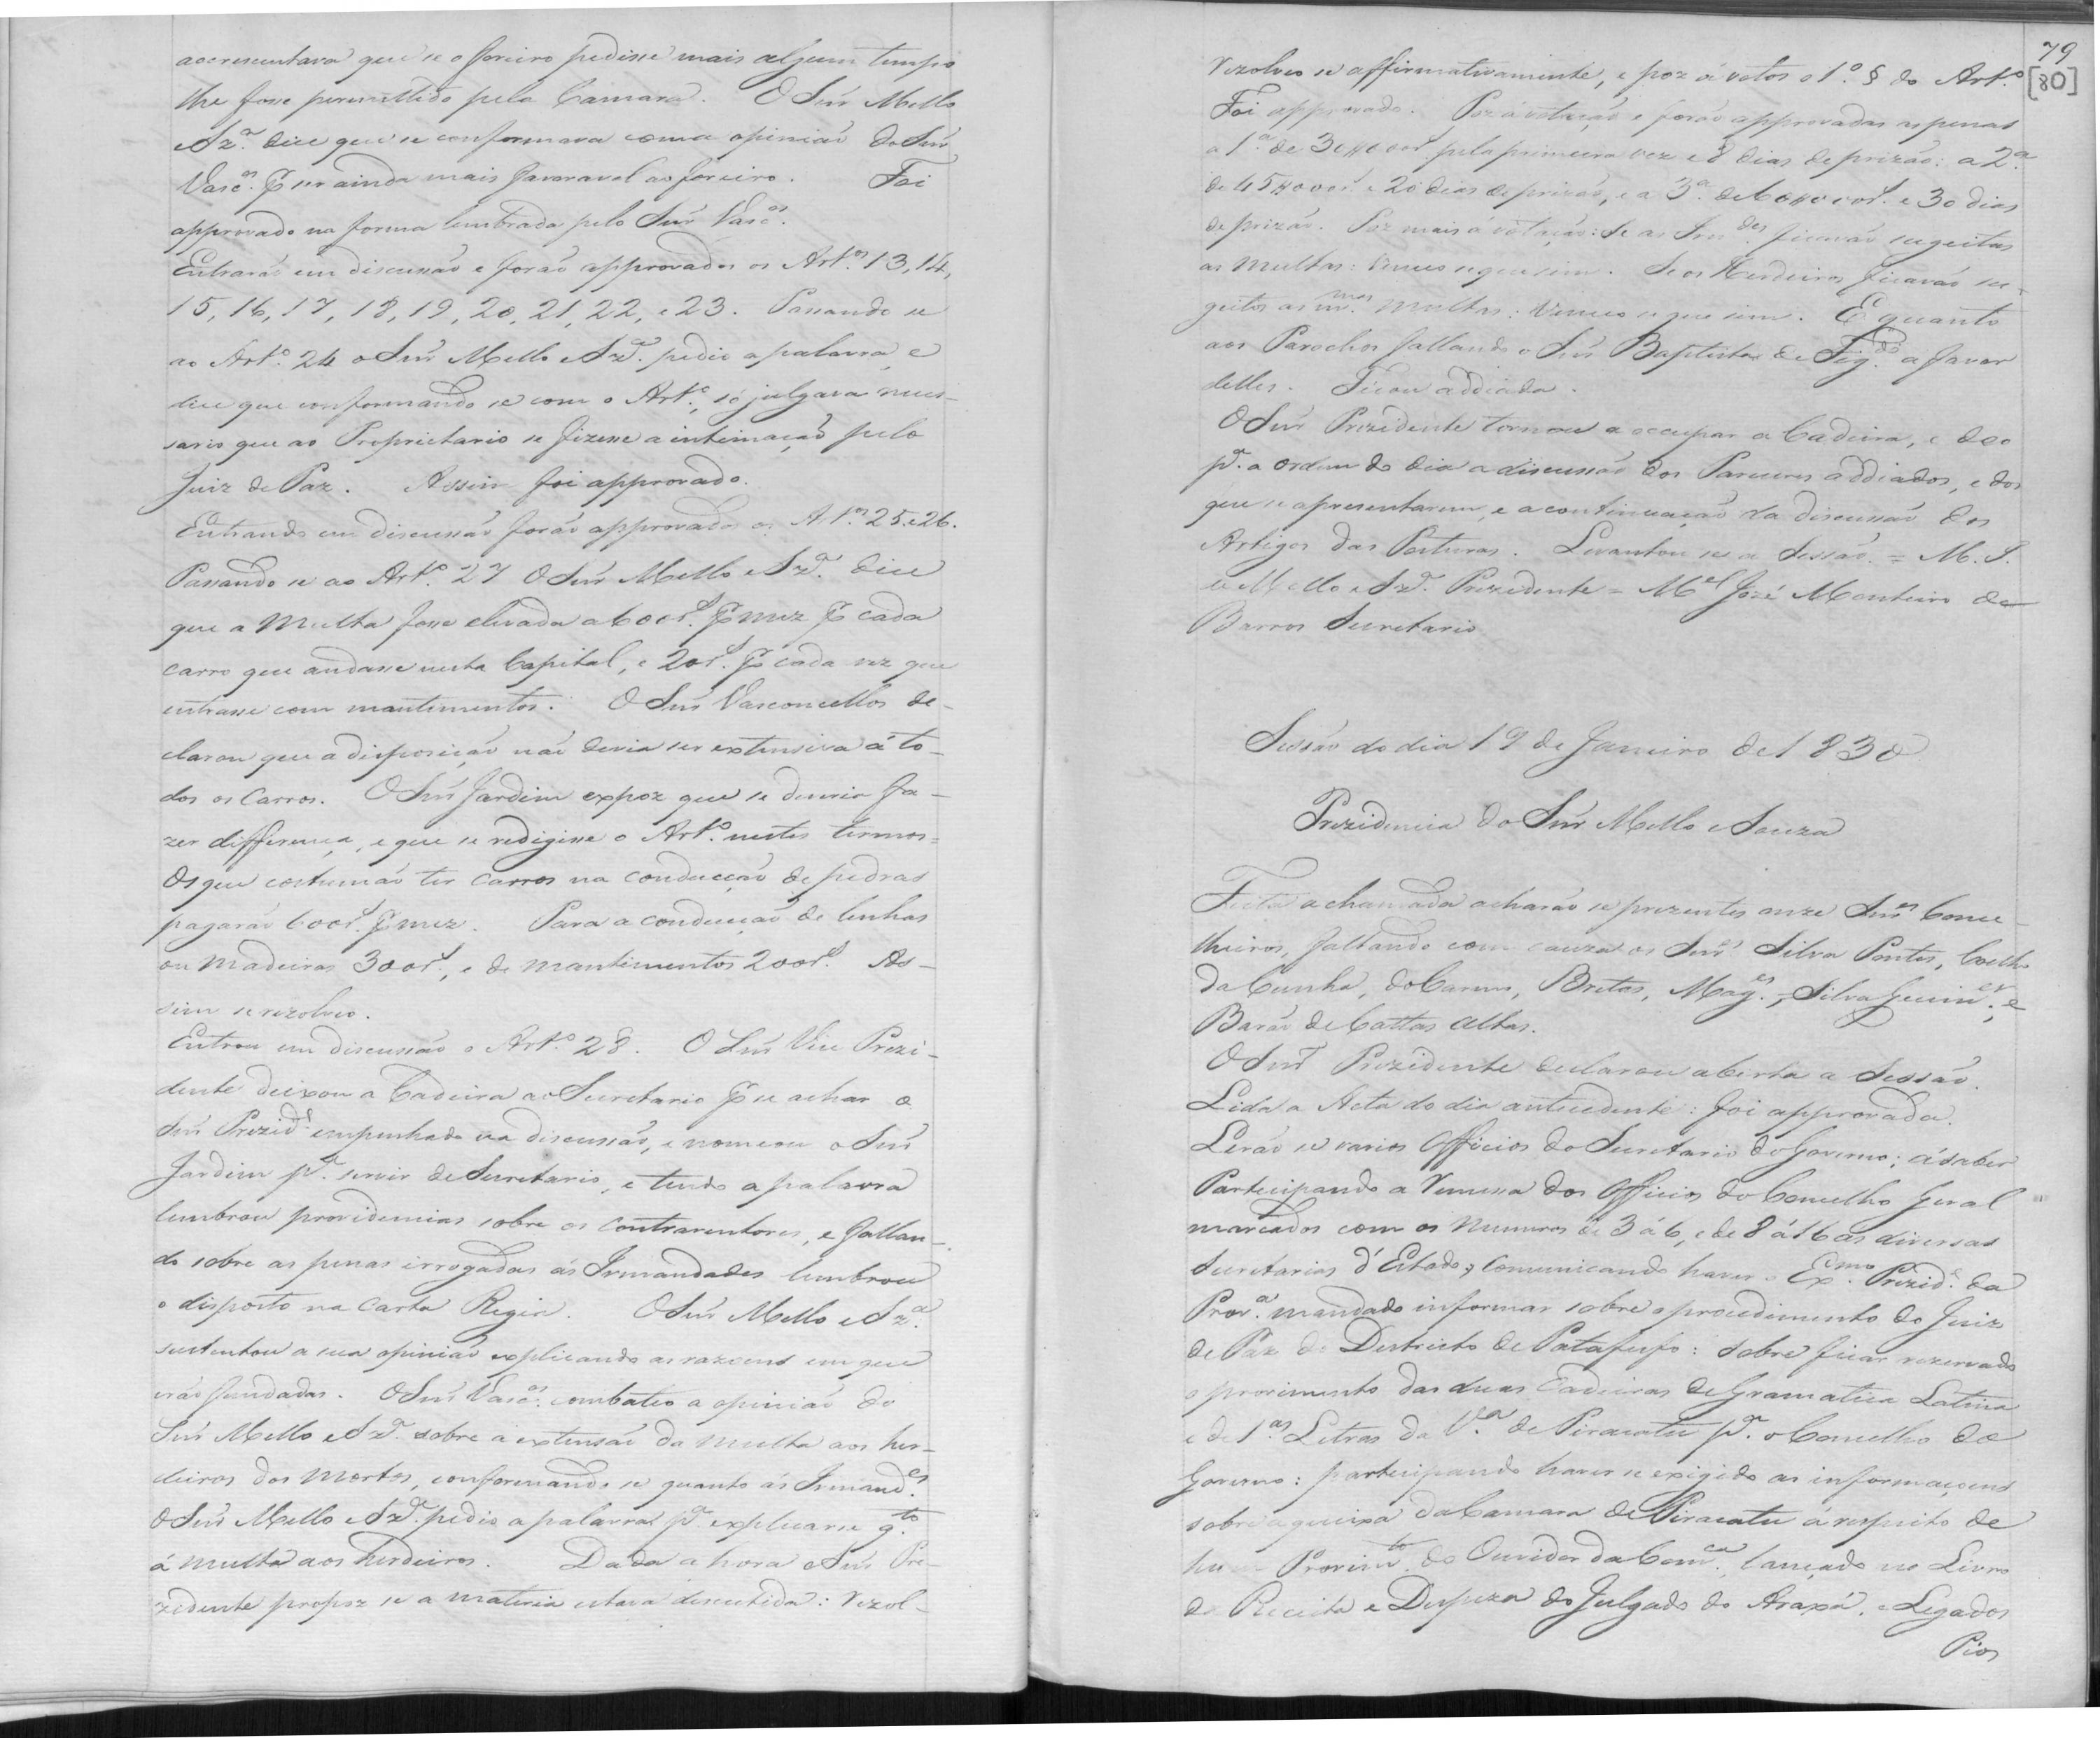 accrescentava que se o foreiro pedisse mais algum tempo
lhe fosse permittido pela Camara. O Snr. Mello
e Sz.ª dice que se conformava com a opinião do Snr.
Vasc.os pr ser ainda mais favoravel ao foreiro. Foi
approvado na forma lembrada pelo Snr. Vasc.os
Entrarão em discussão e forão approvados os Art.os 13, 14,
15, 16, 17, 18, 19, 20, 21, 22, e 23. Passando se
ao Art.º 24 o Snr. Mello e Sz.ª pedio a palavra, e
dice que conformando se com o Art.º, só julgava neces-
sario que ao Proprietario se fizesse a intimação pelo
Juiz de Paz. Assim foi approvado.
Entrando em discussão forão approvados os Art.os 25 e 26.
Passando se ao Art.º 27 O Snr. Mello e Sz.ª dice
que a Multa fosse elevada a 600 r.s pr mez pr cada
carro que andasse nesta Capital, e 20 r.s pr cada vez que
entrasse com mantimentos. O Snr. Vasconcellos de-
clarou que a disposição não devia ser extensiva á to-
dos os Carros. O Snr. Jardim expoz que se devia fa-
zer differença, e que se redigisse o Art.º nestes termos =
Os que costumão ter carros na conducção de pedras
pagarão 600 r.s pr mez. Para a conducção de lenhas
ou madeiras 300 r.s, e de mantimentos 200 r.s. As-
sim se rezolveo.
Entrou em discussão o Art.º 28. O Snr. Vice Prezi-
dente deixou a Cadeira ao Secretario pr se achar o
Snr. Prezid.e empenhado na discussão, e nomeou o Snr.
Jardim p.ª servir de Secretario, e tendo a palavra
lembrou providencias sobre os contraventores, e fallan-
do sobre as penas irrogadas ás Irmandades lembrou
o disposto na Carta Regia. O Snr. Mello e Sz.ª
sustentou a sua opinião explicando as razoens em que
erão fundadas. O Snr. Vasc.os combateo a opinião do
Snr. Mello e Sz.ª sobre a extensão da multa aos her-
deiros dos mortos, conformando se quanto ás Irmand.es
O Snr. Mello e Sz.ª pedio a palavra p.ª explicarse q.to
á multa aos herdeiros. Dada a hora o Snr. Pre-
zidente propoz se a materia estava discutida: rezol-
79
[80]
rezolveo se affirmativamente, e poz á votos o 1.º § do Art.º
Foi approvado. Poz á votação e forão approvadas as penas
a 1.ª de 30#000 r.s pela primeira vez e 8 dias de prizão: a 2.ª
de 45#000 r.s e 20 dias de prizão, e a 3.ª de 60#000 r.s e 30 dias
de prizão. Poz mais á votação: Se as Irm.des ficavão sugeitas
as Multas: Venceo se que sim. Se os Herdeiros ficavão su-
geitos as m.mas multas: Venceo se que sim. E quanto
aos Parochos fallando o Snr. Baptista de Fig.do a favor
delles. Ficou addiada.
O Snr. Prezidente tornou a occupar a Cadeira, e deo
p.ª a ordem do dia a discussão dos Pareceres addiados, e dos
que se apresentarem, e a continuação da discussão dos
Artigos das Posturas. Levantou se a Sessão. = M. I.
de Mello e Sz.ª Prezidente = M.el José Monteiro de
Barros Secretario
Sessão do dia 19 de Janeiro de 1830
Prezidencia do Snr. Mello e Souza
Feita a chamada acharão se prezentes onze Snr.es Conce-
lheiros, faltando com cauza os Snr.es Silva Pontes, Coelho
da Cunha, do Carmo, Bretas, Mag.es, Silva Guim.es, e
Barão de Cattas altas.
O Snr. Prezidente declarou aberta a Sessão.
Lida a Acta do dia antecedente: foi approvada.
Lerão se varios Officios do Secretario do Governo; á saber
Participando a remessa dos Officios do Concelho Geral
marcados com os numeros de 3 á 6, e de 8 á 16 as diversas
Secretarias d'Estado; Comunicando haver o Ex.mo Prezid.e da
Prov.ª mandado informar sobre o procedimento do Juiz
de Paz do Destricto de Patafufo: sobre ficar rezervado
o provimento das duas Cadeiras de Gramatica Latina
e de 1.as Letras da V.ª de Piracatu p.ª o Concelho do
Governo: participando haver se exigido as informaçoens
sobre a queixa da Camara de Piracatu á respeito de
hum Provim.to do Ouvidor da Com.ca, lançado no Livro
de Receita e Despeza do Julgado do Araxá, e Legados
Pios